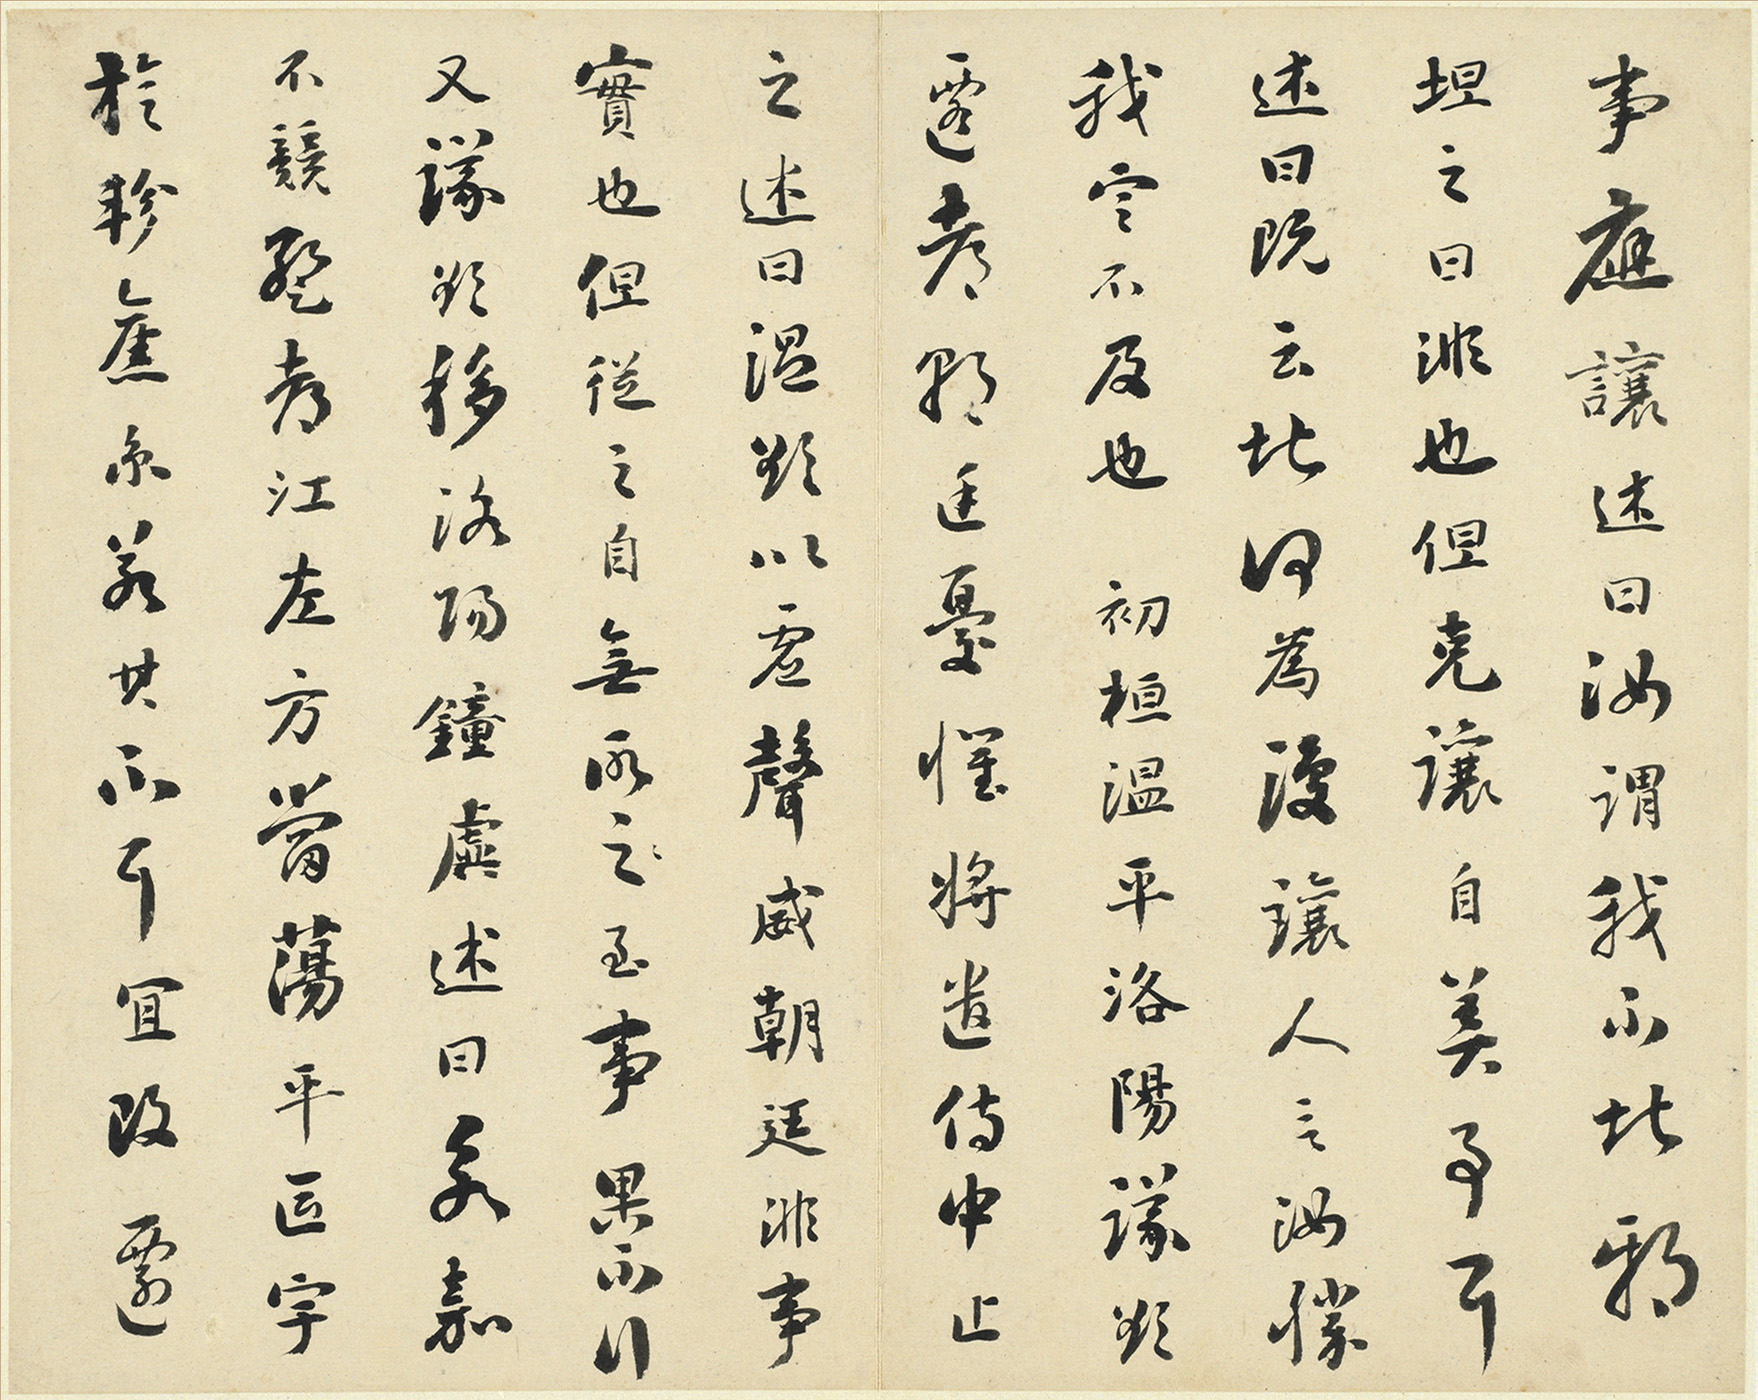 事應讓述曰汝謂我不堪邪
坦之曰非也但克讓自美事耳
述曰既云堪何為復讓人言汝勝
我定不及也 初桓溫平洛陽議欲
遷都朝廷憂懼將遣侍中止
之述曰溫欲以虛聲威朝廷非事
實也但從之自無所之至事果不行
又議欲移洛陽鐘虡述曰永嘉
不競暫都江左方當蕩平區宇
於軫舊京若其不耳宜改遷